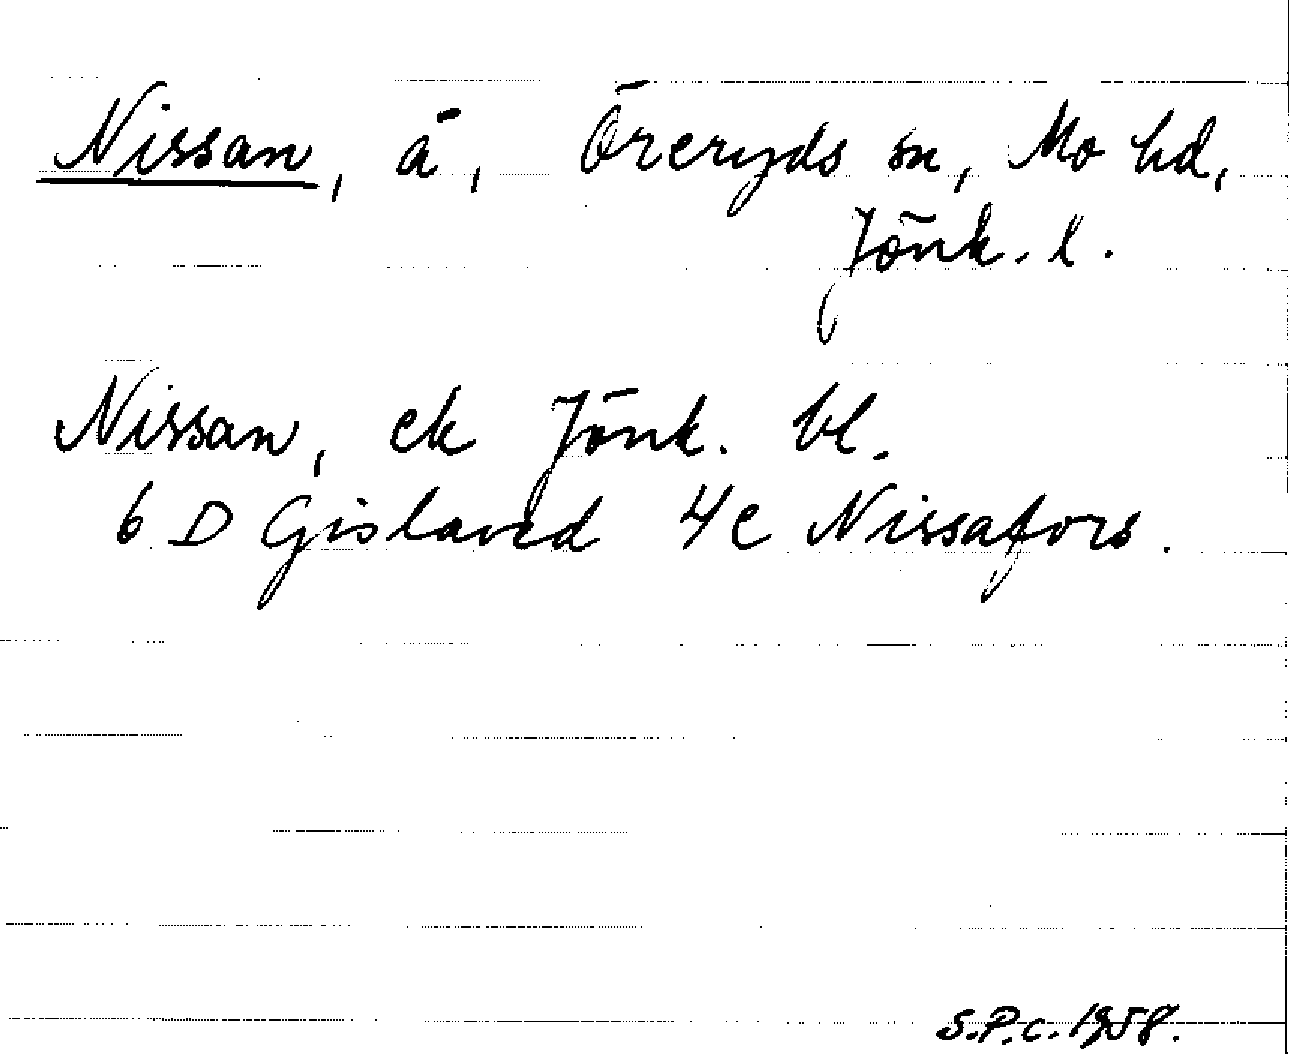 Nissan, å, Öreryds sn, Mo hd,
Jönk. l.
Nissan, ek Jönk. bl.
6 D Gislaved 4c Nissafors.
S.P.C. 1958.